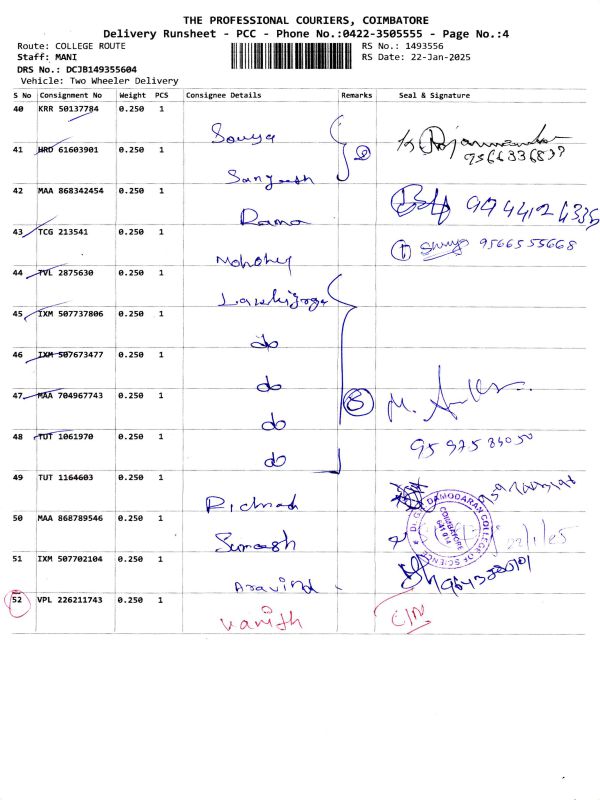 THE PROFESSIONAL COURIERS, COIMBATORE
Delivery Runsheet - PCC - Phone No.:0422-3505555 - Page No.:4
Route: COLLEGE ROUTE
RS No.: 1493556
Staff: MANI
RS Date: 22-Jan-2025
DRS No.: DCJB149355604
Vehicle: Two Wheeler Delivery
S No Consignment No Weight PCS Consignee Details Remarks Seal & Signature
40 KRR 50137784 0.250 1
Sowya
41 HRD 61603901 0.250 1
9566336839
Sangeesh
42 MAA 868342454 0.250 1
Rama
43 TCG 213541 0.250 1
9566555668
44 TVL 2875630 0.250 1
45 IXM 507737806 0.250 1
do
46 IXM 507673477 0.250 1
do
47 MAA 704967743 0.250 1
8
do
48 TUT 1061970 0.250 1
do
49 TUT 1164603 0.250 1
Richard
50 MAA 868789546 0.250 1
DR.G.R.DAMODARAN COLLEGE OF SCIENCE
COIMBATORE
641 014
22/1/25
Sumesh
51 IXM 507702104 0.250 1
Aravind
52 VPL 226211743 0.250 1
C/N
Vanith